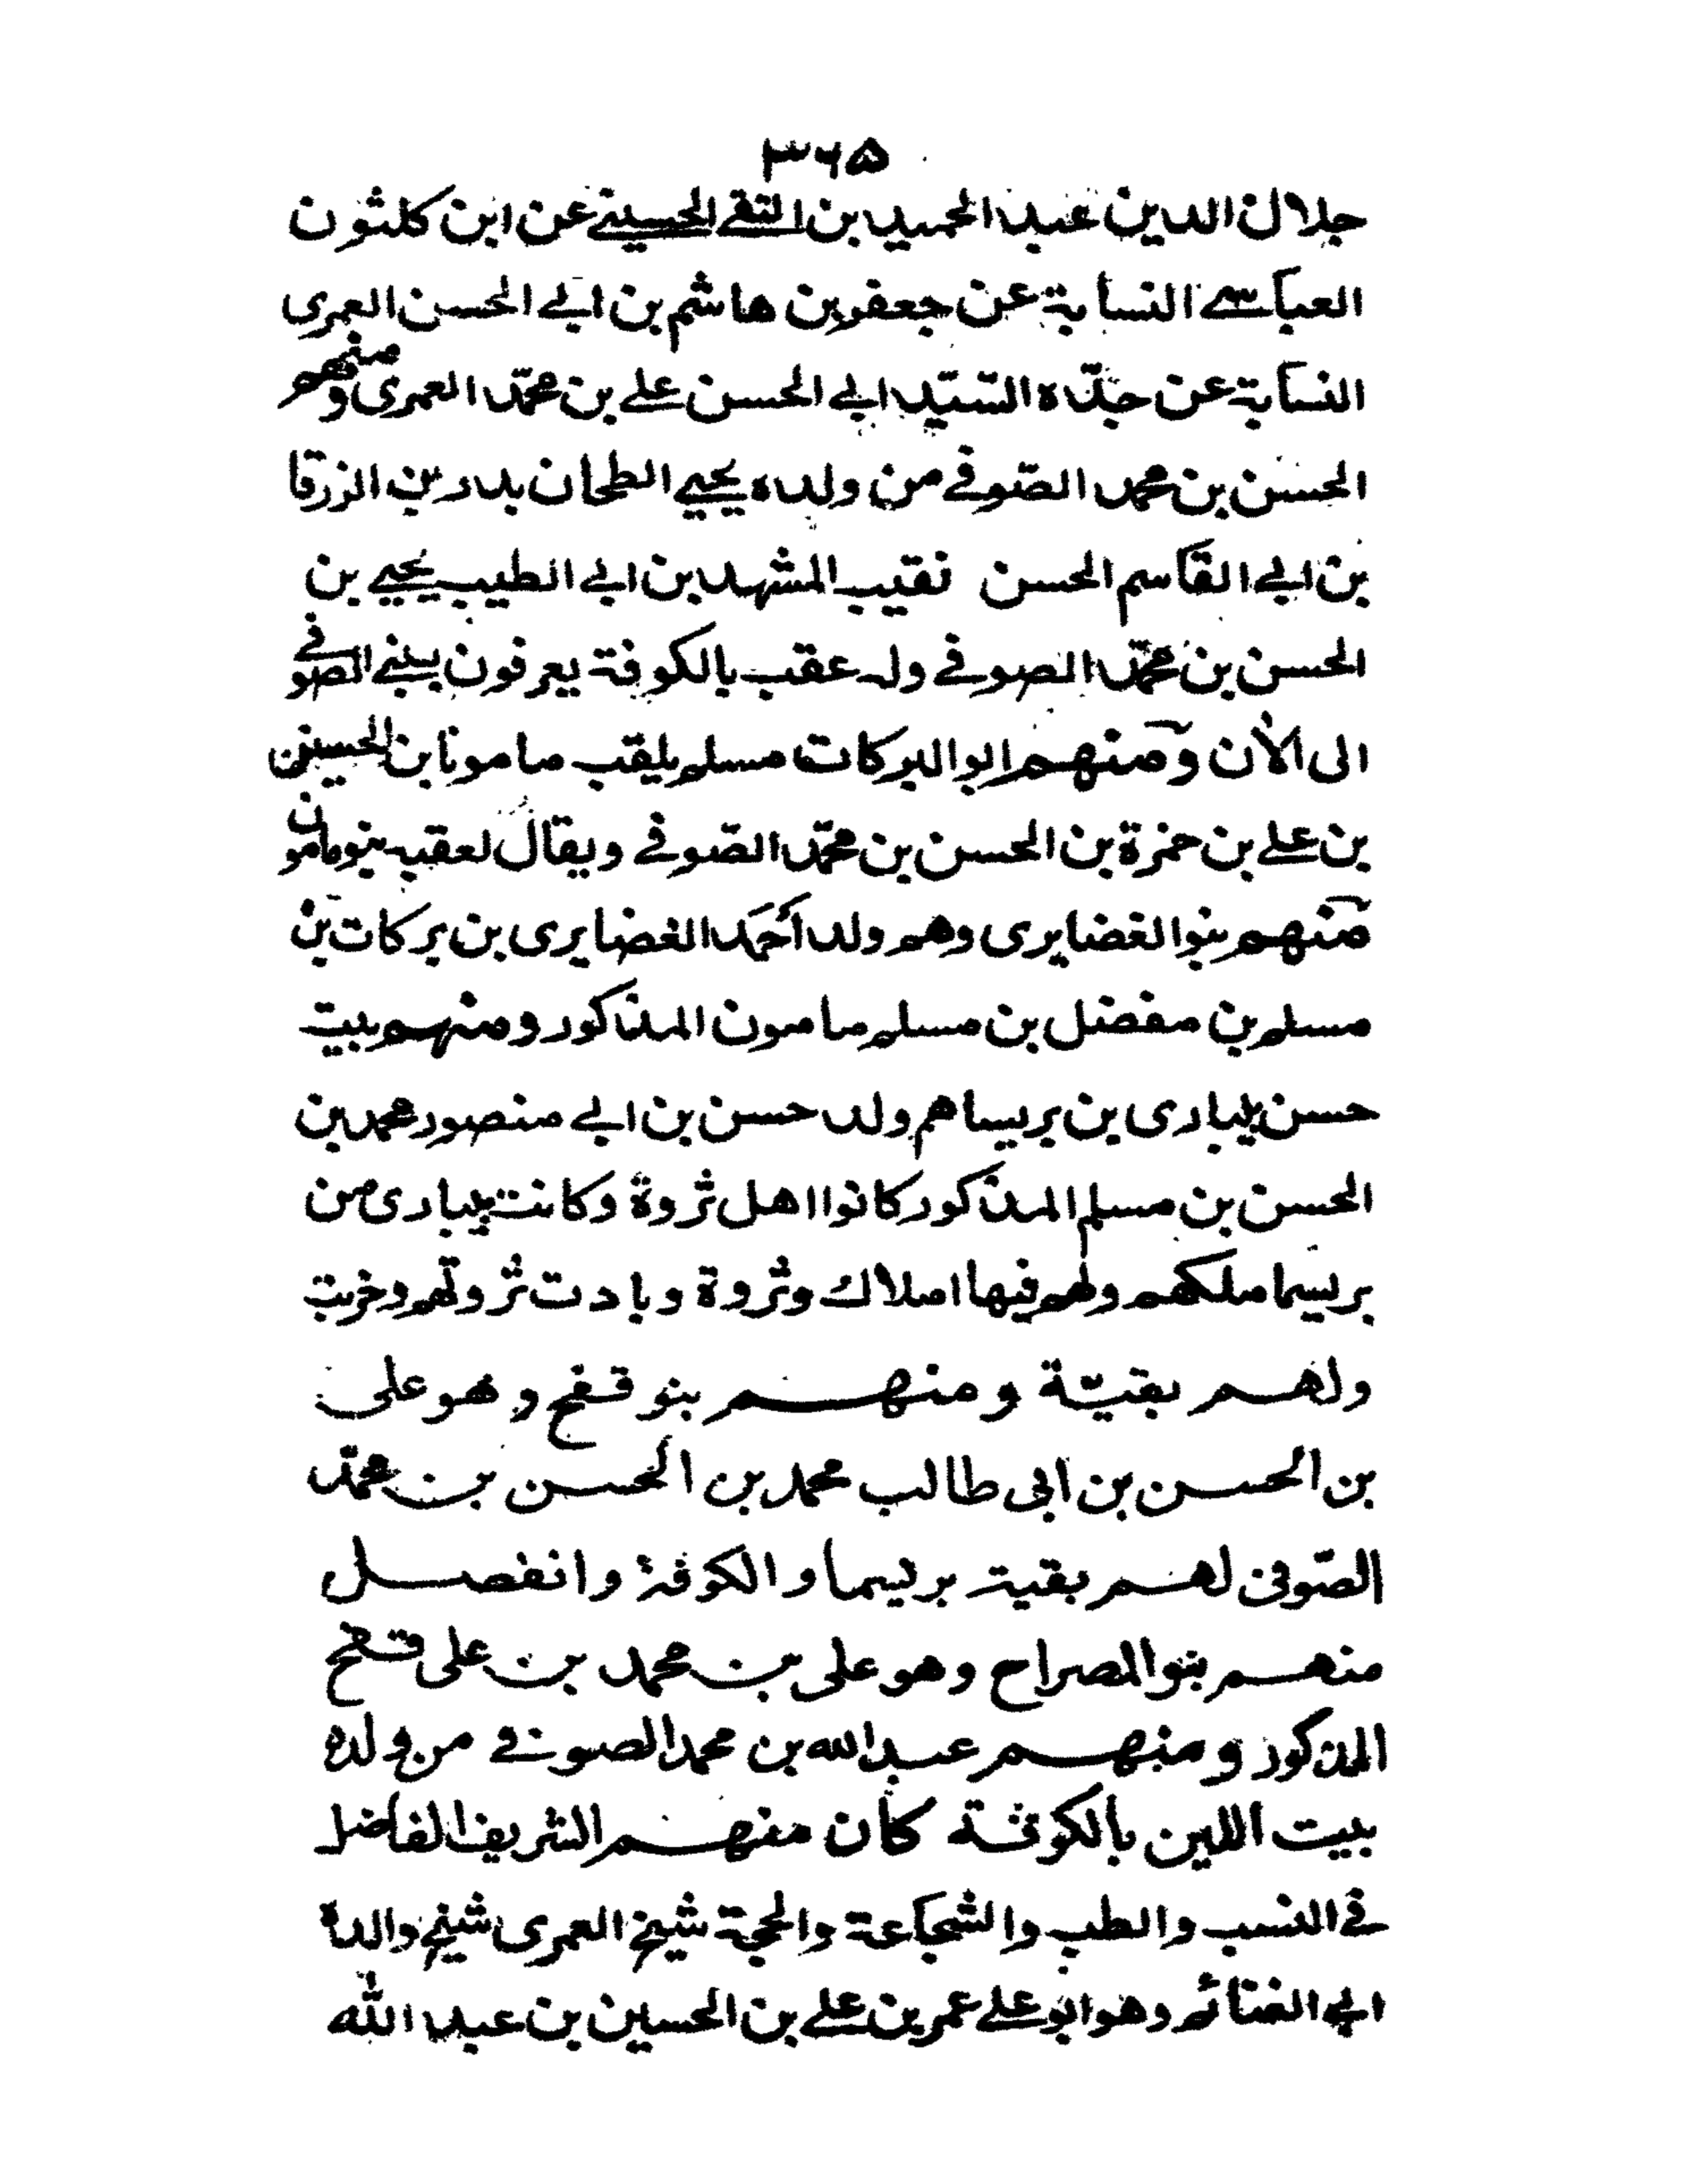 ٣٦٥
جلال الدين عبد الحميد بن التقي الحسيني عن ابن كلثون
العباسي النسابة عن جعفر بن هاشم بن ابي الحسن العمرى
النسابة عن جدّه السّيّد ابي الحسن علي بن محمّد العمرى ومنهم
الحسن بن محمد الصّوفي من ولده يحيي الطحان بدرب الزرقا
بن ابي القاسم الحسن نقيب المشهد بن ابي الطيب يحيي بن
الحسن بن محمّد الصوفي وله عقب بالكوفة يعرفون ببني الصوفي
الى الآن ومنهم ابوالبركات مسلم يلقب مامونا بن الحسين
بن علي بن حمزة بن الحسن بن محمّد الصّوفي ويقال لعقبه بنو مامون
منهم بنوا الغضايرى وهم ولد أحمد الغضايرى بن بركات بن
مسلم بن مفضل بن مسلم مامون المذكور ومنهم بيت
حسن بن ابي منصور محمد بن
الحسن بن مسلم المذكور كانوا اهل ثروة وكانت من
بريسما ملكهم ولهم فيها املاك وثروة وبادت ثروتهم وخربت
ولهم بقيّة ومنهم بنو قفح وهو على
بن الحسن بن ابى طالب محمد بن الحسن بن محمّد
الصّوفى لهم بقية بريسما والكوفة وانفصل
منهم بنوا المصراح وهو على بن محمد بن على قفح
المذكور ومنهم عبدالله بن محمد الصوفي من ولده
بيت اللبن بالكوفة كان منهم الشريف الفاضل
في النسب والطب والشجاعة والحجة شيخ العمرى شيخ والده
ابي الغنائم وهو ابو علي عمر بن علي بن الحسين بن عبد الله